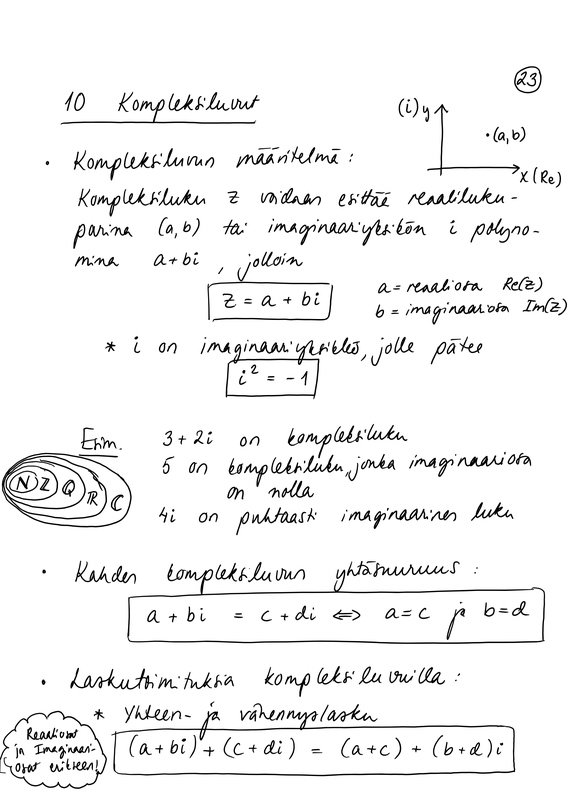 23
10 Kompleksiluvut
(i) y
•(a,b)
x (Re)
• Kompleksiluvun määritelmä :
Kompleksiluku z voidaan esittää reaaliluku-
parina (a,b) tai imaginaariyksikön i polyno-
mina a+bi , jolloin
z = a + bi
a = reaaliosa Re(z)
b = imaginaariosa Im(z)
* i on imaginaariyksikkö, jolle pätee
i² = -1
Esim.
3 + 2i on kompleksiluku
5 on kompleksiluku, jonka imaginaariosa
on nolla
4i on puhtaasti imaginaarinen luku
N Z Q R C
• Kahden kompleksiluvun yhtäsuuruus :
a + bi = c + di ⇔ a=c ja b=d
• Laskutoimituksia kompleksiluvuilla :
* Yhteen- ja vähennyslasku
Reaaliosat
ja Imaginaari-
osat erikseen!
(a+bi) + (c+di) = (a+c) + (b+d)i